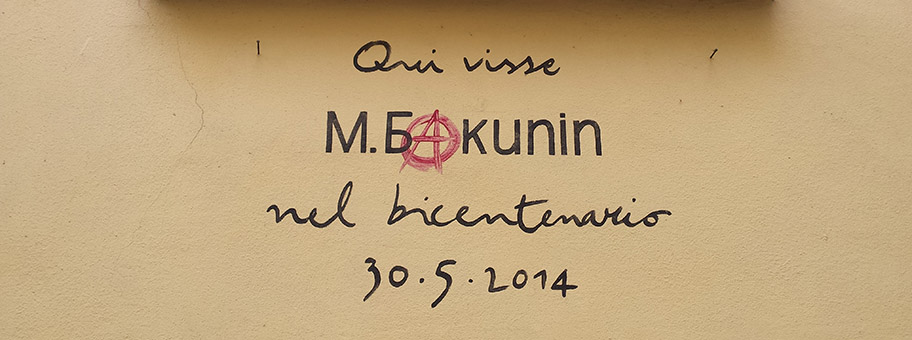 Qui visse
М.БAkunin
nel bicentenario
30.5.2014